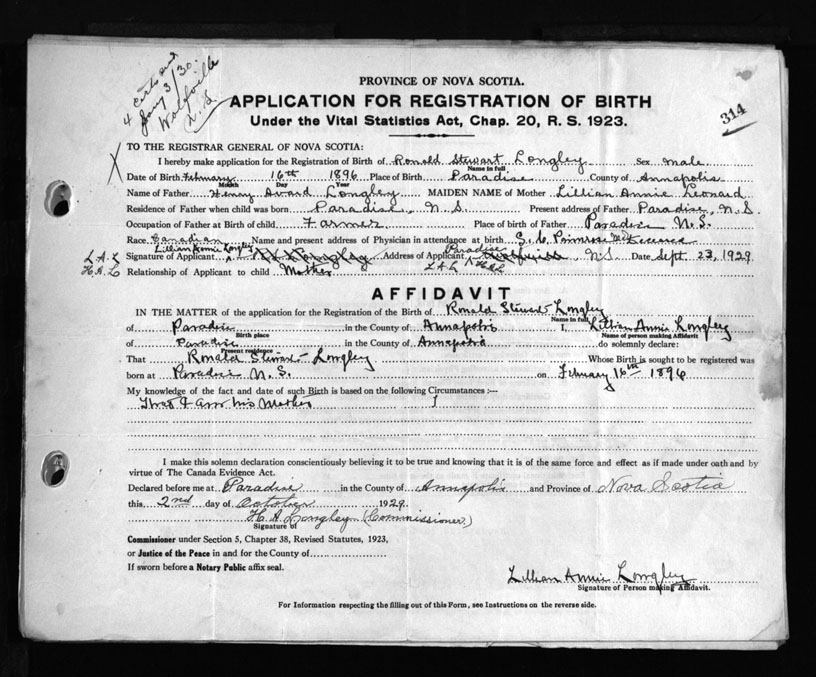 4 certs sent
Jany 3/30.
Wolfville
N.S.
PROVINCE OF NOVA SCOTIA.
APPLICATION FOR REGISTRATION OF BIRTH
Under the Vital Statistics Act, Chap. 20, R. S. 1923.
314
TO THE REGISTRAR GENERAL OF NOVA SCOTIA:
I hereby make application for the Registration of Birth of Ronald Stewart Longley Sex male
Name in full
Date of Birth February 16th 1896 Place of Birth Paradise County of Annapolis
Month Day Year
Name of Father Henry Avard Longley MAIDEN NAME of Mother Lillian Annie Leonard
Residence of Father when child was born Paradise, N.S. Present address of Father Paradise, N.S.
Occupation of Father at Birth of child Farmer Place of Birth of Father Paradise N.S.
Race Canadian Name and present address of Physician in attendance at birth S. C. Primrose
Lillian Annie Longley Paradise
L.A.L Signature of Applicant Longley Address of Applicant N.S. Date Sept. 23, 1929
H.A.L Relationship of Applicant to child Mother L.A.L H.A.L
AFFIDAVIT
IN THE MATTER of the application for the Registration of the Birth of Ronald Stewart Longley
Name in full
of Paradise in the County of Annapolis I, Lillian Annie Longley
Birth place Name of person making Affidavit
of Paradise in the County of Annapolis do solemnly declare:
Present residence
That Ronald Stewart Longley Whose Birth is sought to be registered was
born at Paradise N.S. on February 16th 1896
My knowledge of the fact and date of such Birth is based on the following Circumstances :—
That I am his Mother
I make this solemn declaration conscientiously believing it to be true and knowing that it is of the same force and effect as if made under oath and by
virtue of The Canada Evidence Act.
Declared before me at Paradise in the County of Annapolis and Province of Nova Scotia
this 2nd day of October 1929.
H. A. Longley (Commissioner)
Signature of
Commissioner under Section 5, Chapter 38, Revised Statutes, 1923,
or Justice of the Peace in and for the County of
If sworn before a Notary Public affix seal.
Lillian Annie Longley
Signature of Person making Affidavit.
For Information respecting the filling out of this Form, see Instructions on the reverse side.